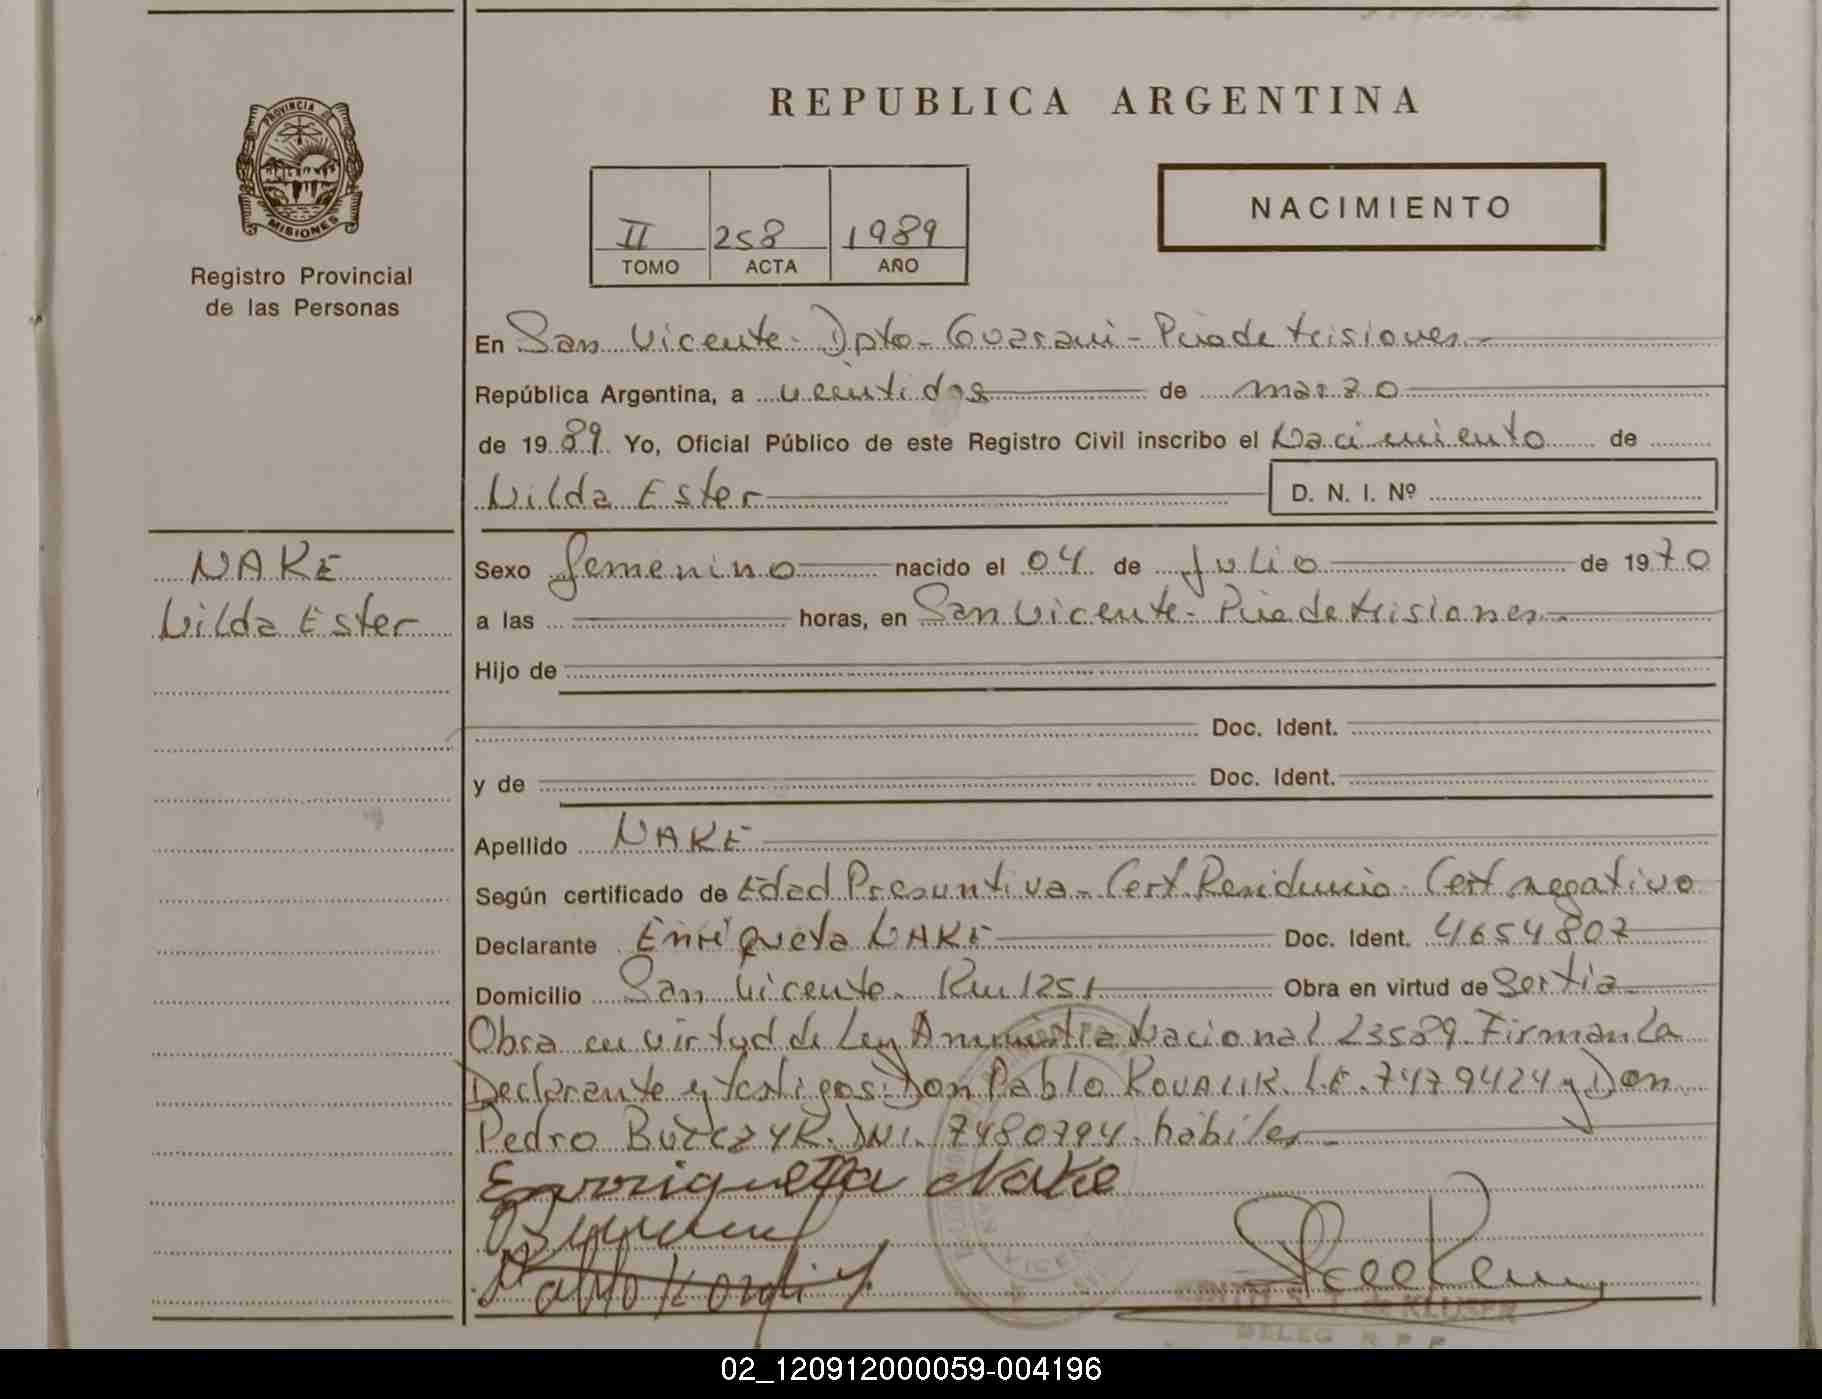 REPUBLICA ARGENTINA
PROVINCIA DE
MISIONES
Registro Provincial
de las Personas
II 258 1989
TOMO ACTA AÑO
NACIMIENTO
En San Vicente - Dpto - Guarani - Pcia de Misiones
República Argentina, a veintidos de marzo
de 19 89 Yo, Oficial Público de este Registro Civil inscribo el Nacimiento de
Nilda Ester D. N. I. Nº
NAKE
Nilda Ester
Sexo femenino nacido el 04 de Julio de 19 70
a las horas, en San Vicente - Pcia de Misiones
Hijo de
Doc. Ident.
y de Doc. Ident.
Apellido NAKE
Según certificado de Edad Presuntiva - Cert. Residencia - Cert negativo
Declarante Enriqueta NAKE Doc. Ident. 4654807
Domicilio San Vicente - Km 1251 Obra en virtud de
Obra en virtud de Ley Amnistia Nacional 23589. Firman La
Declarante y testigos: Don Pablo KOVALIK. L.E. 7479424 y Don
Pedro DNI. 7480794. habiles
Enrriquetta Nake
DELEG R P P
02_120912000059-004196